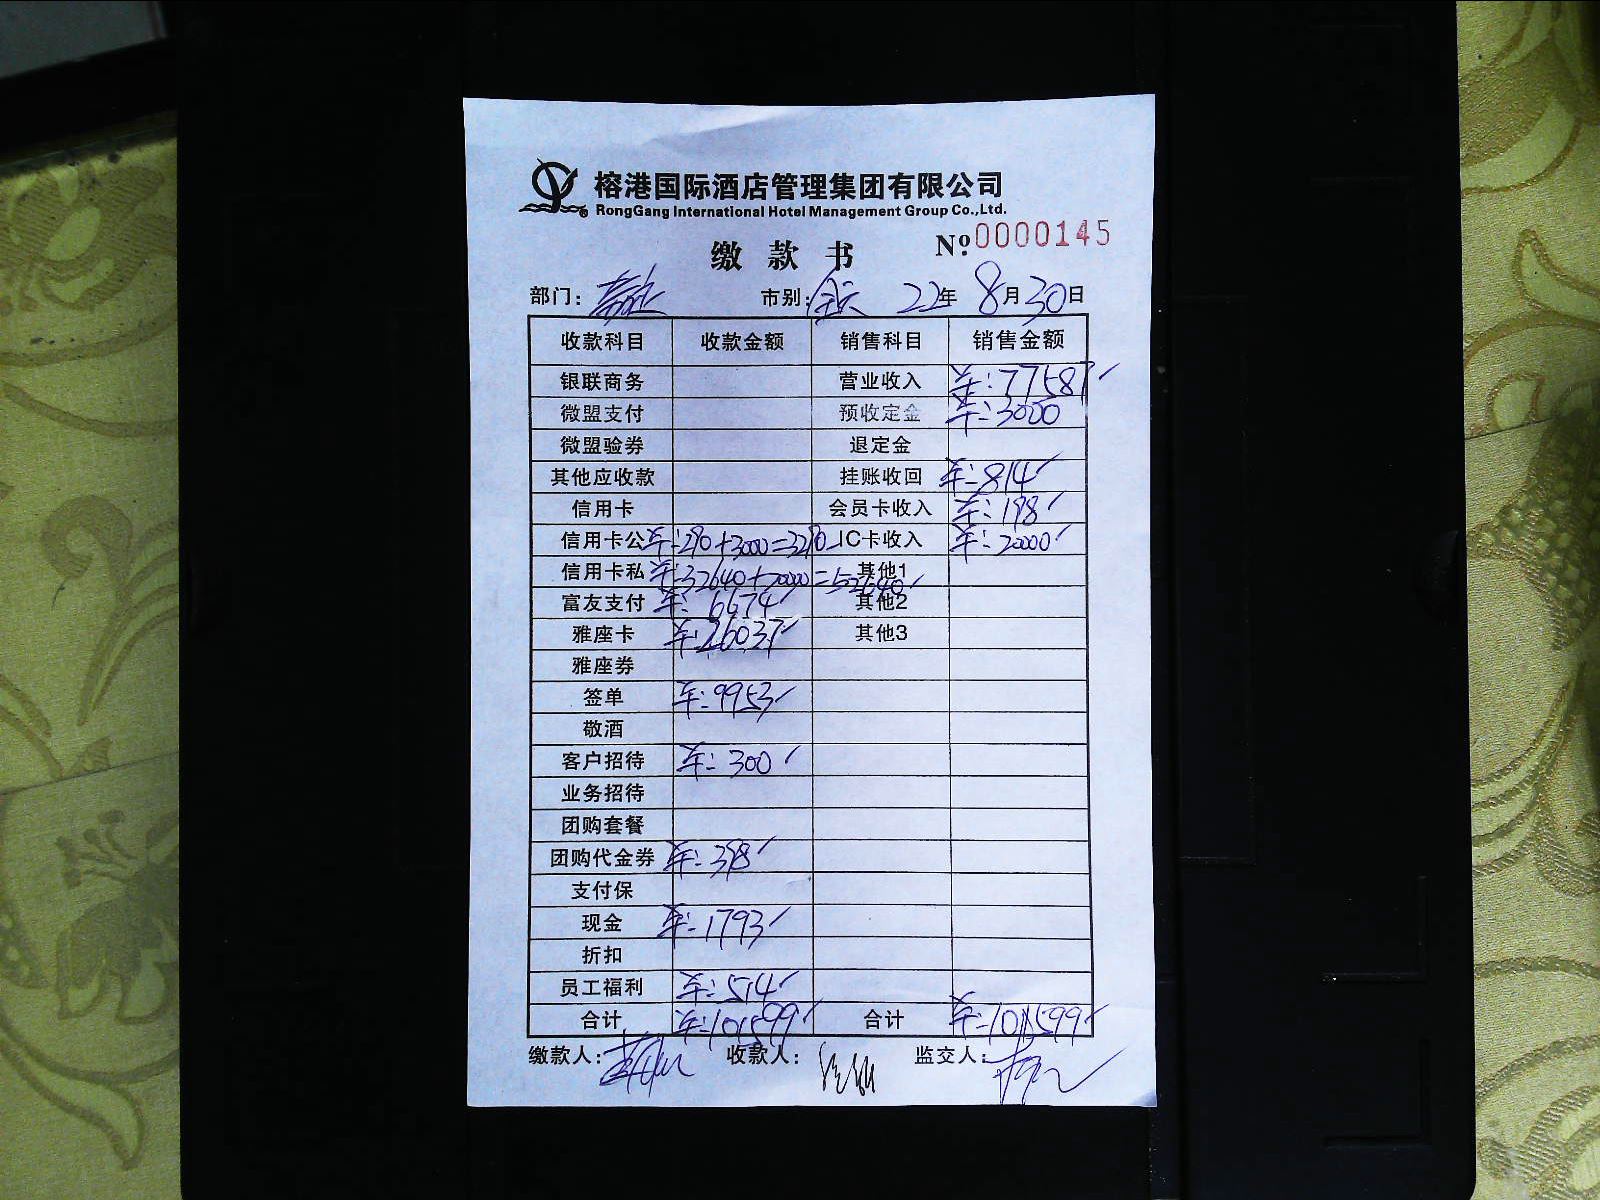 榕港国际酒店管理集团有限公司
RongGang International Hotel Management Group Co.,Ltd.
缴款书 Nº 0000145
部门: 市别: 全天 22年 8月30日
收款科目 收款金额 销售科目 销售金额
银联商务 营业收入 ¥:77587
微盟支付 预收定金 ¥:3000
微盟验券 退定金
其他应收款 挂账收回 ¥:814
信用卡 会员卡收入 ¥:198
信用卡公 ¥:290+3000=3290 IC卡收入 ¥:20000
信用卡私 ¥:32640+20000=52640 其他1
富友支付 ¥:6674 其他2
雅座卡 ¥:26037 其他3
雅座券
签单 ¥:9953
敬酒
客户招待 ¥:300
业务招待
团购套餐
团购代金券 ¥:398
支付保
现金 ¥:1793
折扣
员工福利 ¥:514
合计 ¥:101599 合计 ¥:101599
缴款人: 收款人: 监交人: